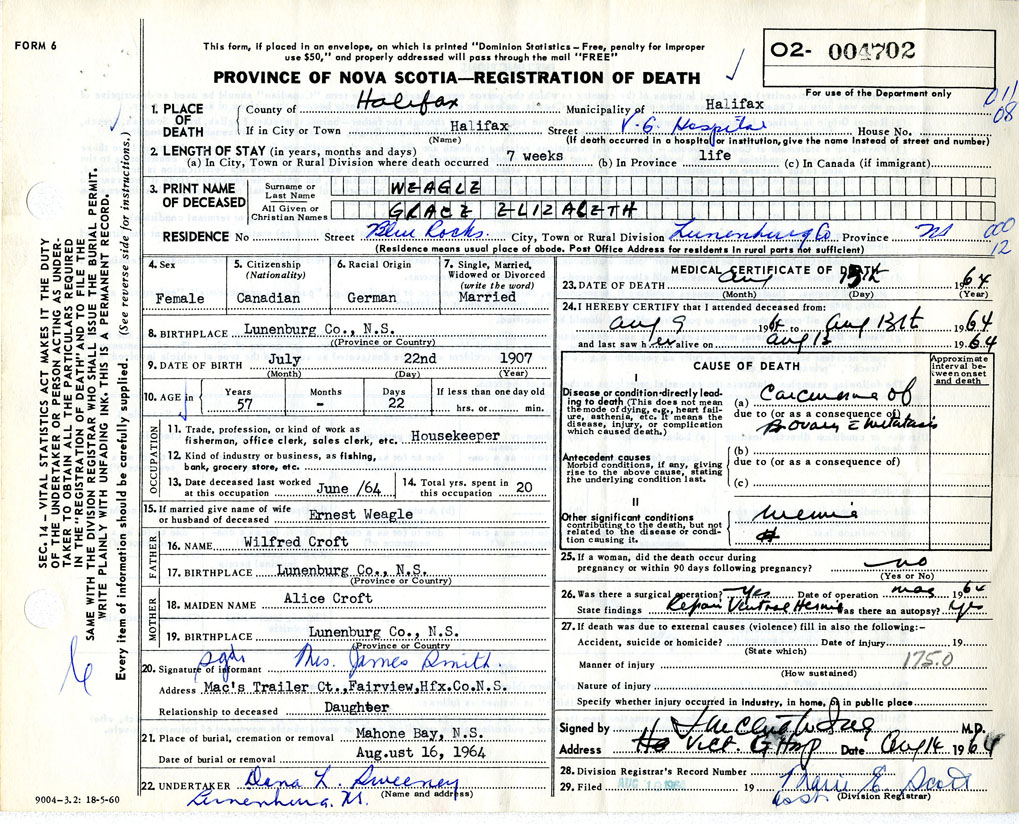 FORM 6
This form, if placed in an envelope, on which is printed "Dominion Statistics – Free, penalty for improper
use $50," and properly addressed will pass through the mail "FREE"
PROVINCE OF NOVA SCOTIA—REGISTRATION OF DEATH
O2- 004702
For use of the Department only
011
08
1. PLACE OF DEATH
County of Halifax Municipality of Halifax
If in City or Town Halifax Street V. G. Hospital House No.
(Name) (If death occurred in a hospital or institution, give the name instead of street and number)
2. LENGTH OF STAY (in years, months and days)
(a) In City, Town or Rural Division where death occurred 7 weeks (b) In Province life (c) In Canada (if immigrant)
3. PRINT NAME OF DECEASED
Surname or Last Name WEAGLE
All Given or Christian Names GRACE ELIZABETH
RESIDENCE No Street Blue Rocks. City, Town or Rural Division Lunenburg Co Province NS
000
12
(Residence means usual place of abode. Post Office Address for residents in rural parts not sufficient)
4. Sex
Female
5. Citizenship (Nationality)
Canadian
6. Racial Origin
German
7. Single, Married, Widowed or Divorced (write the word)
Married
8. BIRTHPLACE Lunenburg Co., N.S.
(Province or Country)
9. DATE OF BIRTH July 22nd 1907
(Month) (Day) (Year)
10. AGE in Years Months Days If less than one day old
57 - 22 hrs. or min.
OCCUPATION
11. Trade, profession, or kind of work as
fisherman, office clerk, sales clerk, etc. Housekeeper
12. Kind of industry or business, as fishing,
bank, grocery store, etc.
13. Date deceased last worked at this occupation June /64
14. Total yrs. spent in this occupation 20
15. If married give name of wife
or husband of deceased Ernest Weagle
FATHER
16. NAME Wilfred Croft
17. BIRTHPLACE Lunenburg Co., N.S.
(Province or Country)
MOTHER
18. MAIDEN NAME Alice Croft
19. BIRTHPLACE Lunenburg Co., N.S.
(Province or Country)
20. Signature of informant sgd. Mrs. James Smith.
Address Mac's Trailer Ct.,Fairview,Hfx.Co.N.S.
Relationship to deceased Daughter
21. Place of burial, cremation or removal Mahone Bay, N.S.
Date of burial or removal Aug.ust 16, 1964
22. UNDERTAKER Dana L. Sweeney
(Name and address)
Lunenburg. NS.
9004-3.2: 18-5-60
SEC. 14 – VITAL STATISTICS ACT MAKES IT THE DUTY
OF THE UNDERTAKER OR PERSON ACTING AS UNDER-
TAKER TO OBTAIN ALL THE PARTICULARS REQUIRED
IN THE "REGISTRATION OF DEATH" AND TO FILE THE
SAME WITH THE DIVISION REGISTRAR WHO SHALL ISSUE THE BURIAL PERMIT.
WRITE PLAINLY WITH UNFADING INK. THIS IS A PERMANENT RECORD.
Every item of information should be carefully supplied. (See reverse side for instructions.)
MEDICAL CERTIFICATE OF DEATH
23. DATE OF DEATH Aug 13th 1964
(Month) (Day) (Year)
24. I HEREBY CERTIFY that I attended deceased from:
Aug 9 1964 to Aug 13th 1964
and last saw her alive on Aug 13 1964
CAUSE OF DEATH
Approximate interval between onset and death
I
Disease or condition directly leading to death (This does not mean the mode of dying, e.g., heart failure, asthenia, etc. It means the disease, injury, or complication which caused death.)
(a) Carcinoma of
due to (or as a consequence of)
Ovary c metastasis
Antecedent causes
Morbid conditions, if any, giving rise to the above cause, stating the underlying condition last.
(b)
due to (or as a consequence of)
(c)
II
Other significant conditions
contributing to the death, but not related to the disease or condition causing it.
25. If a woman, did the death occur during
pregnancy or within 90 days following pregnancy? no
(Yes or No)
26. Was there a surgical operation? Yes Date of operation 1964
State findings Repair Ventral Hernia Was there an autopsy? Yes
27. If death was due to external causes (violence) fill in also the following:–
Accident, suicide or homicide? Date of injury 19
(State which)
Manner of injury 175.0
(How sustained)
Nature of injury
Specify whether injury occurred in industry, in home, or in public place
Signed by M.D.
Address Vict. G Hosp Date Aug 14 1964
28. Division Registrar's Record Number
29. Filed 19 Marie E. Scott
asst. (Division Registrar)